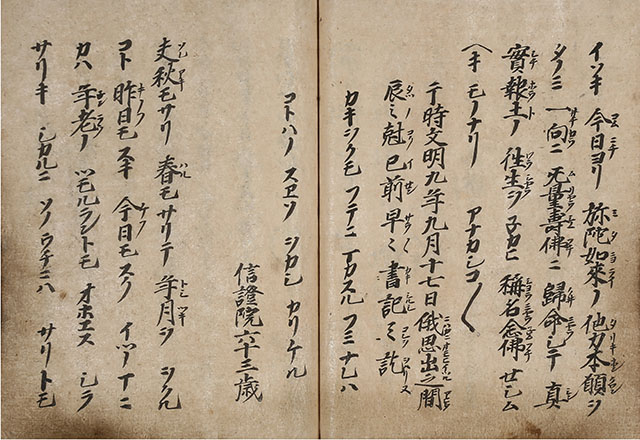 イソキ 今日ヨリ 弥陀如来ノ 他力本願ヲ
タノミ 一向ニ 无量壽佛ニ 歸命シテ 真
實報土ノ 往生ヲ ネカヒ 稱名念佛 セシム
ヘキ モノナリ アナカシコ〱
于時文明九年九月十七日俄思出之間
辰之尅已前早々書記之訖
カキヲクモ フテニ マカスル フミナレハ
コトハノ スヱソ ヲカシ カリケル
信證院六十三歳
夫秋モサリ 春モサリテ 年月ヲ ヲクル
コト 昨日モ スキ 今日モ スク イツノマニ
カハ 年老ノ ツモルラントモ オホエス シラ
サリキ シカルニ ソノウチニハ サリトモ